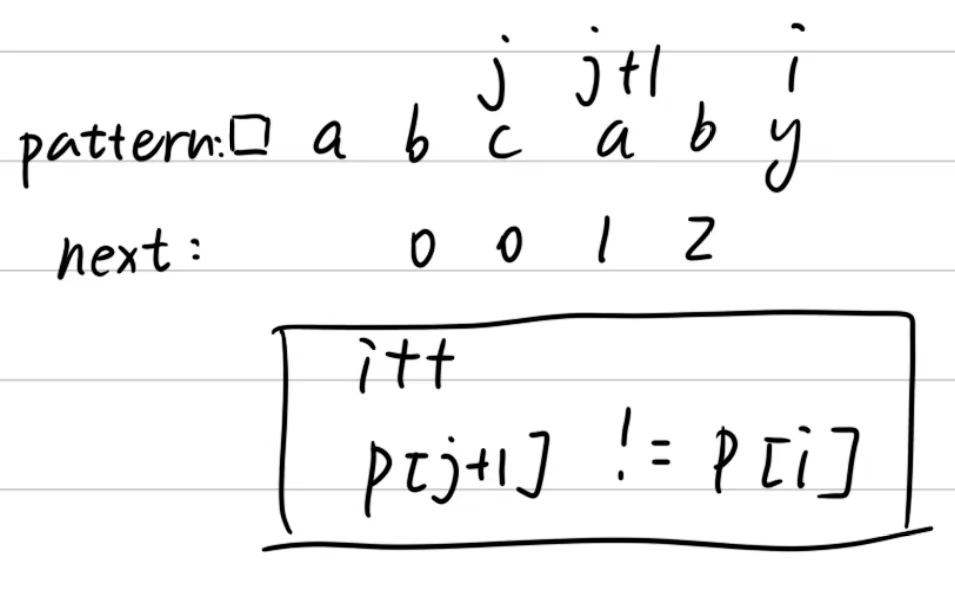 j j+1 i
pattern:□ a b c a b y
next: 0 0 1 2
i++
p[j+1] != p[i]